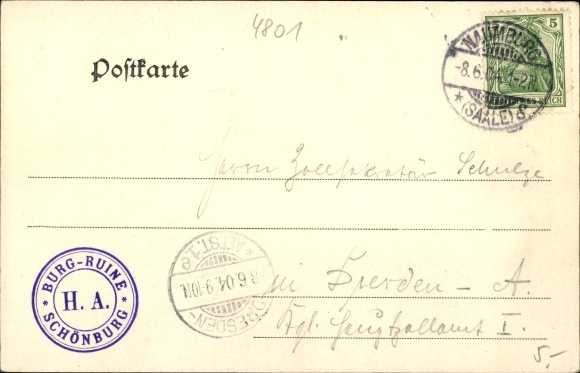 4801
Postkarte
5
DEUTSCHES REICH
NAUMBURG
-8.6.04. 1-2N.
* (SAALE) *
Herrn Zollsekretär Schulze
in Dresden – A.
Kgl. Hauptzollamt I.
* ALTST. 1 e
8.6.04. 9-10N.
DRESDEN-
BURG-RUINE
* H. A. *
SCHÖNBURG
5,-